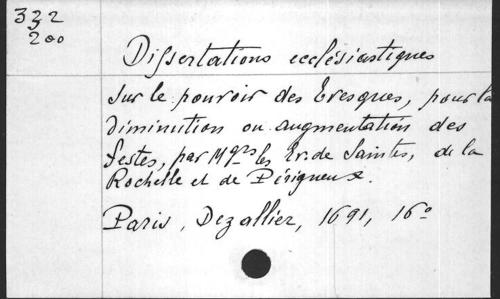 332
200
Dissertations ecclésiastiques
sur le pouvoir des Evesques, pour la
diminution ou augmentation des
Festes, par Mgrs les Ev. de Saintes, de la
Rochelle et de Périgueux.
Paris, Dezallier, 1691, 16º